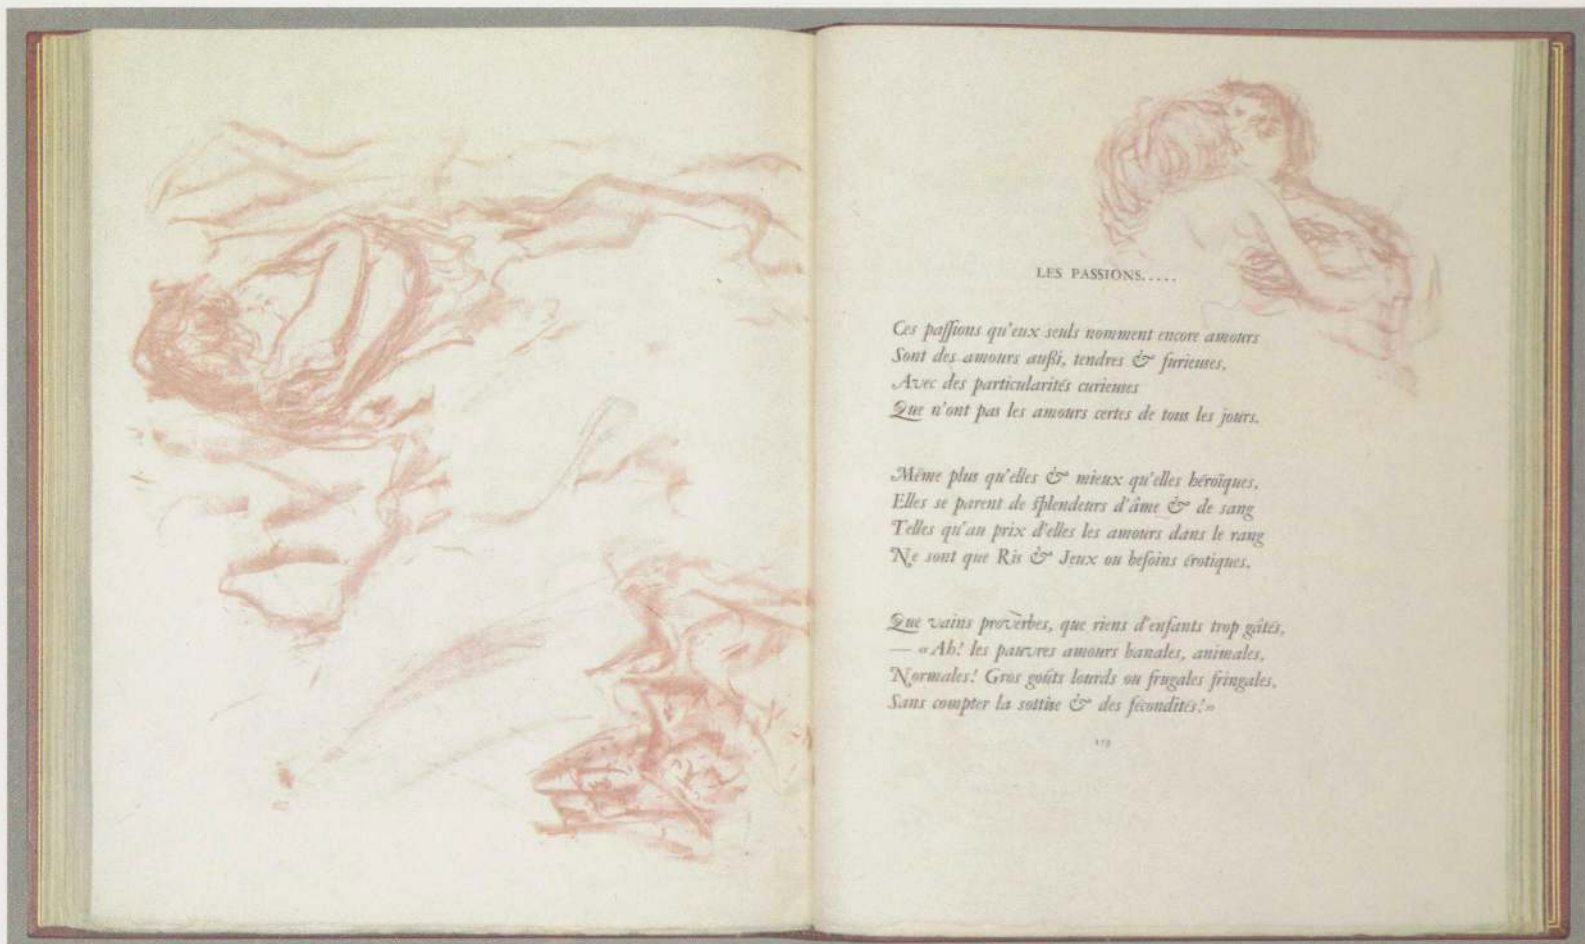 LES PASSIONS.....
Ces paſſions qu'eux seuls nomment encore amours
Sont des amours außi, tendres & furieuses,
Avec des particularités curieuses
Que n'ont pas les amours certes de tous les jours.
Même plus qu'elles & mieux qu'elles héroïques,
Elles se parent de splendeurs d'âme & de sang
Telles qu'au prix d'elles les amours dans le rang
Ne sont que Ris & Jeux ou beſoins érotiques,
Que vains proverbes, que riens d'enfants trop gâtés,
— «Ah! les pauvres amours banales, animales,
Normales! Gros goûts lourds ou frugales fringales,
Sans compter la sottise & des fécondités!»